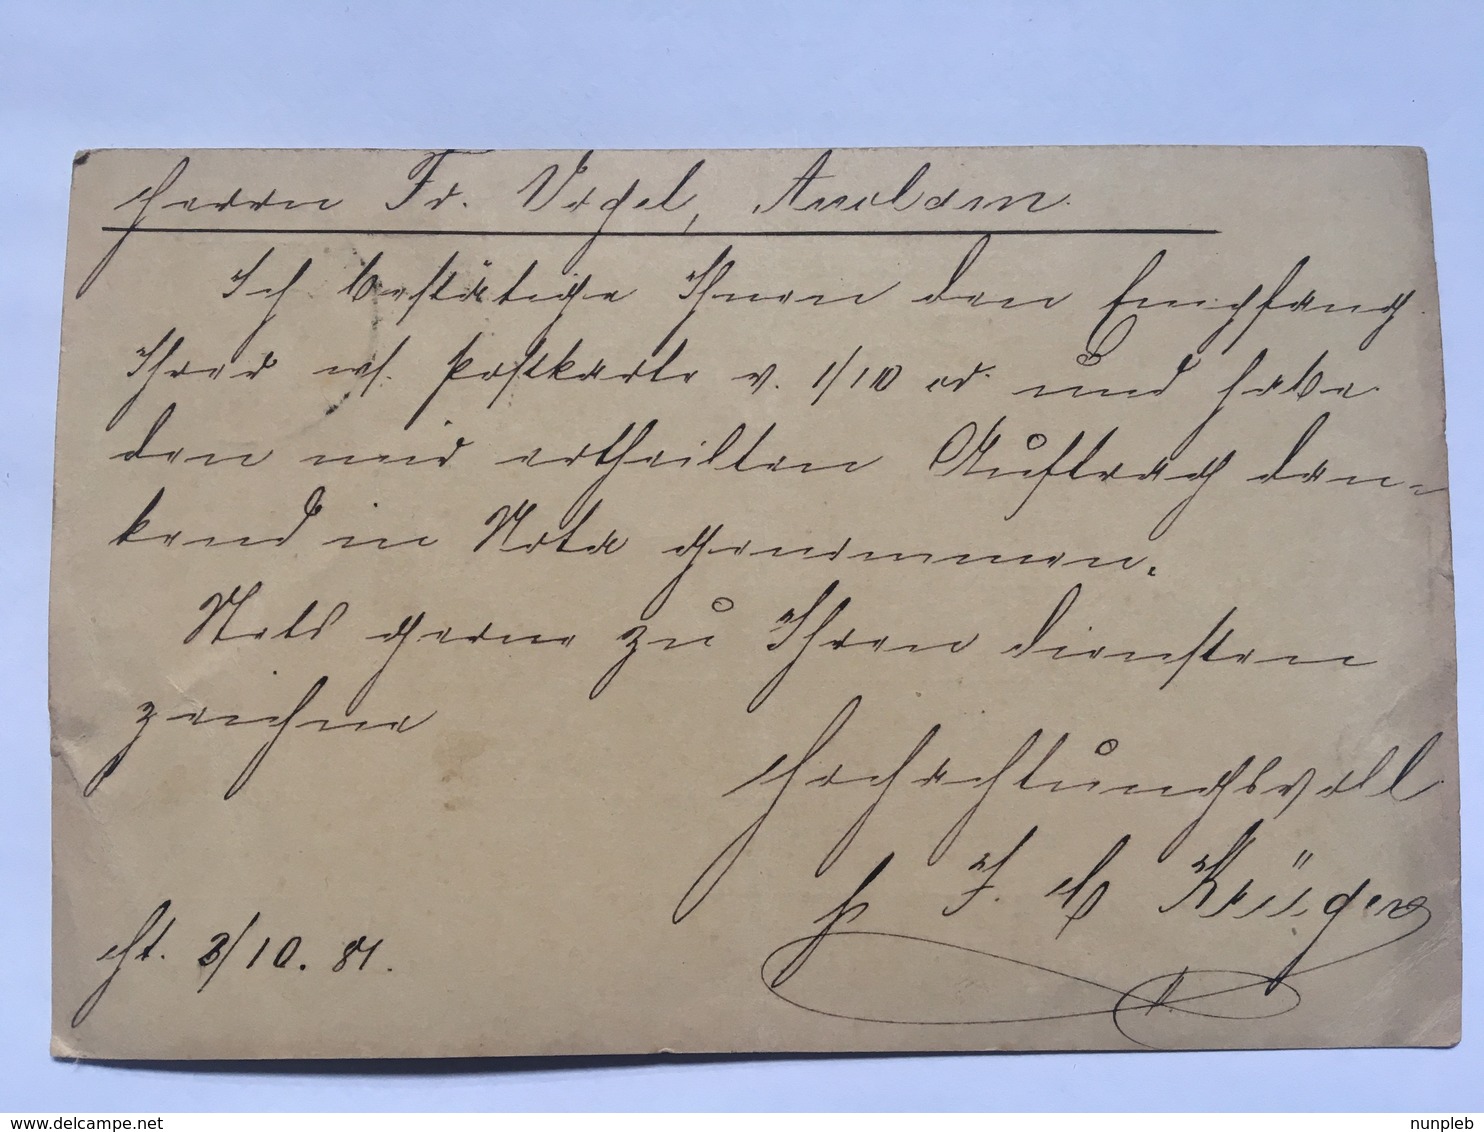 Herrn Fr. Vogel, Anclam.
Ich bestätige Ihnen den Empfang
Ihrer w/. Postkarte v. 1/10 cr. und habe
den mir ertheilten Auftrag dan-
kend in Nota genommen.
Stets gerne zu Ihren Diensten
zeichne
Hochachtungsvoll
p J. C Krüger
St. 3/10. 81.
www.delcampe.net
nunpleb